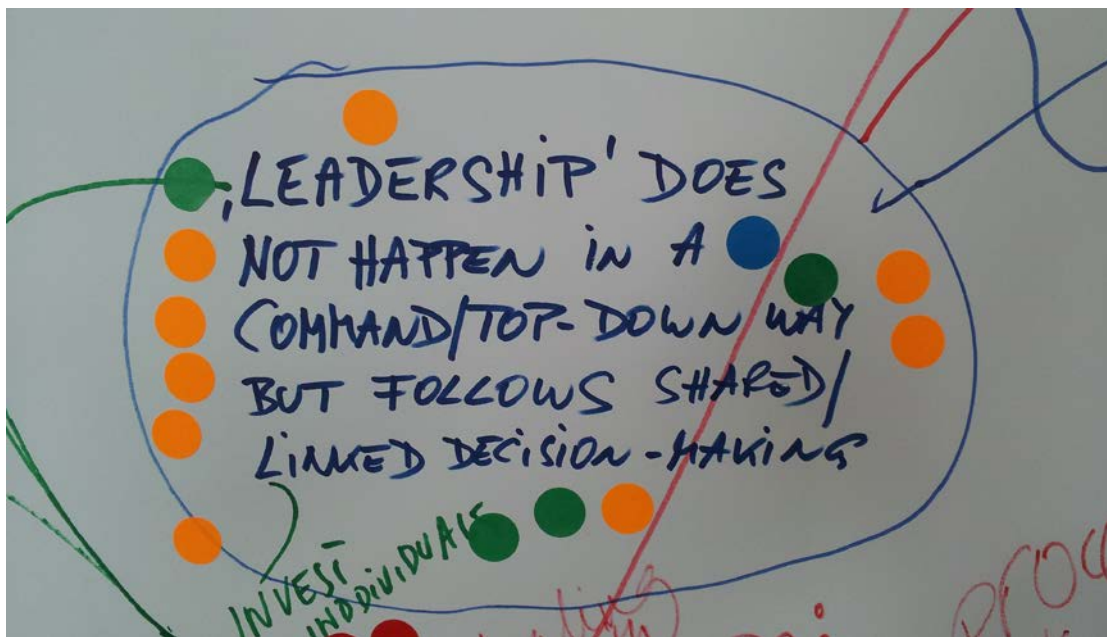 ‚LEADERSHIP' DOES
NOT HAPPEN IN A
COMMAND/TOP-DOWN WAY
BUT FOLLOWS SHARED/
LINKED DECISION-MAKING
INVEST
INDDIVIDUALS